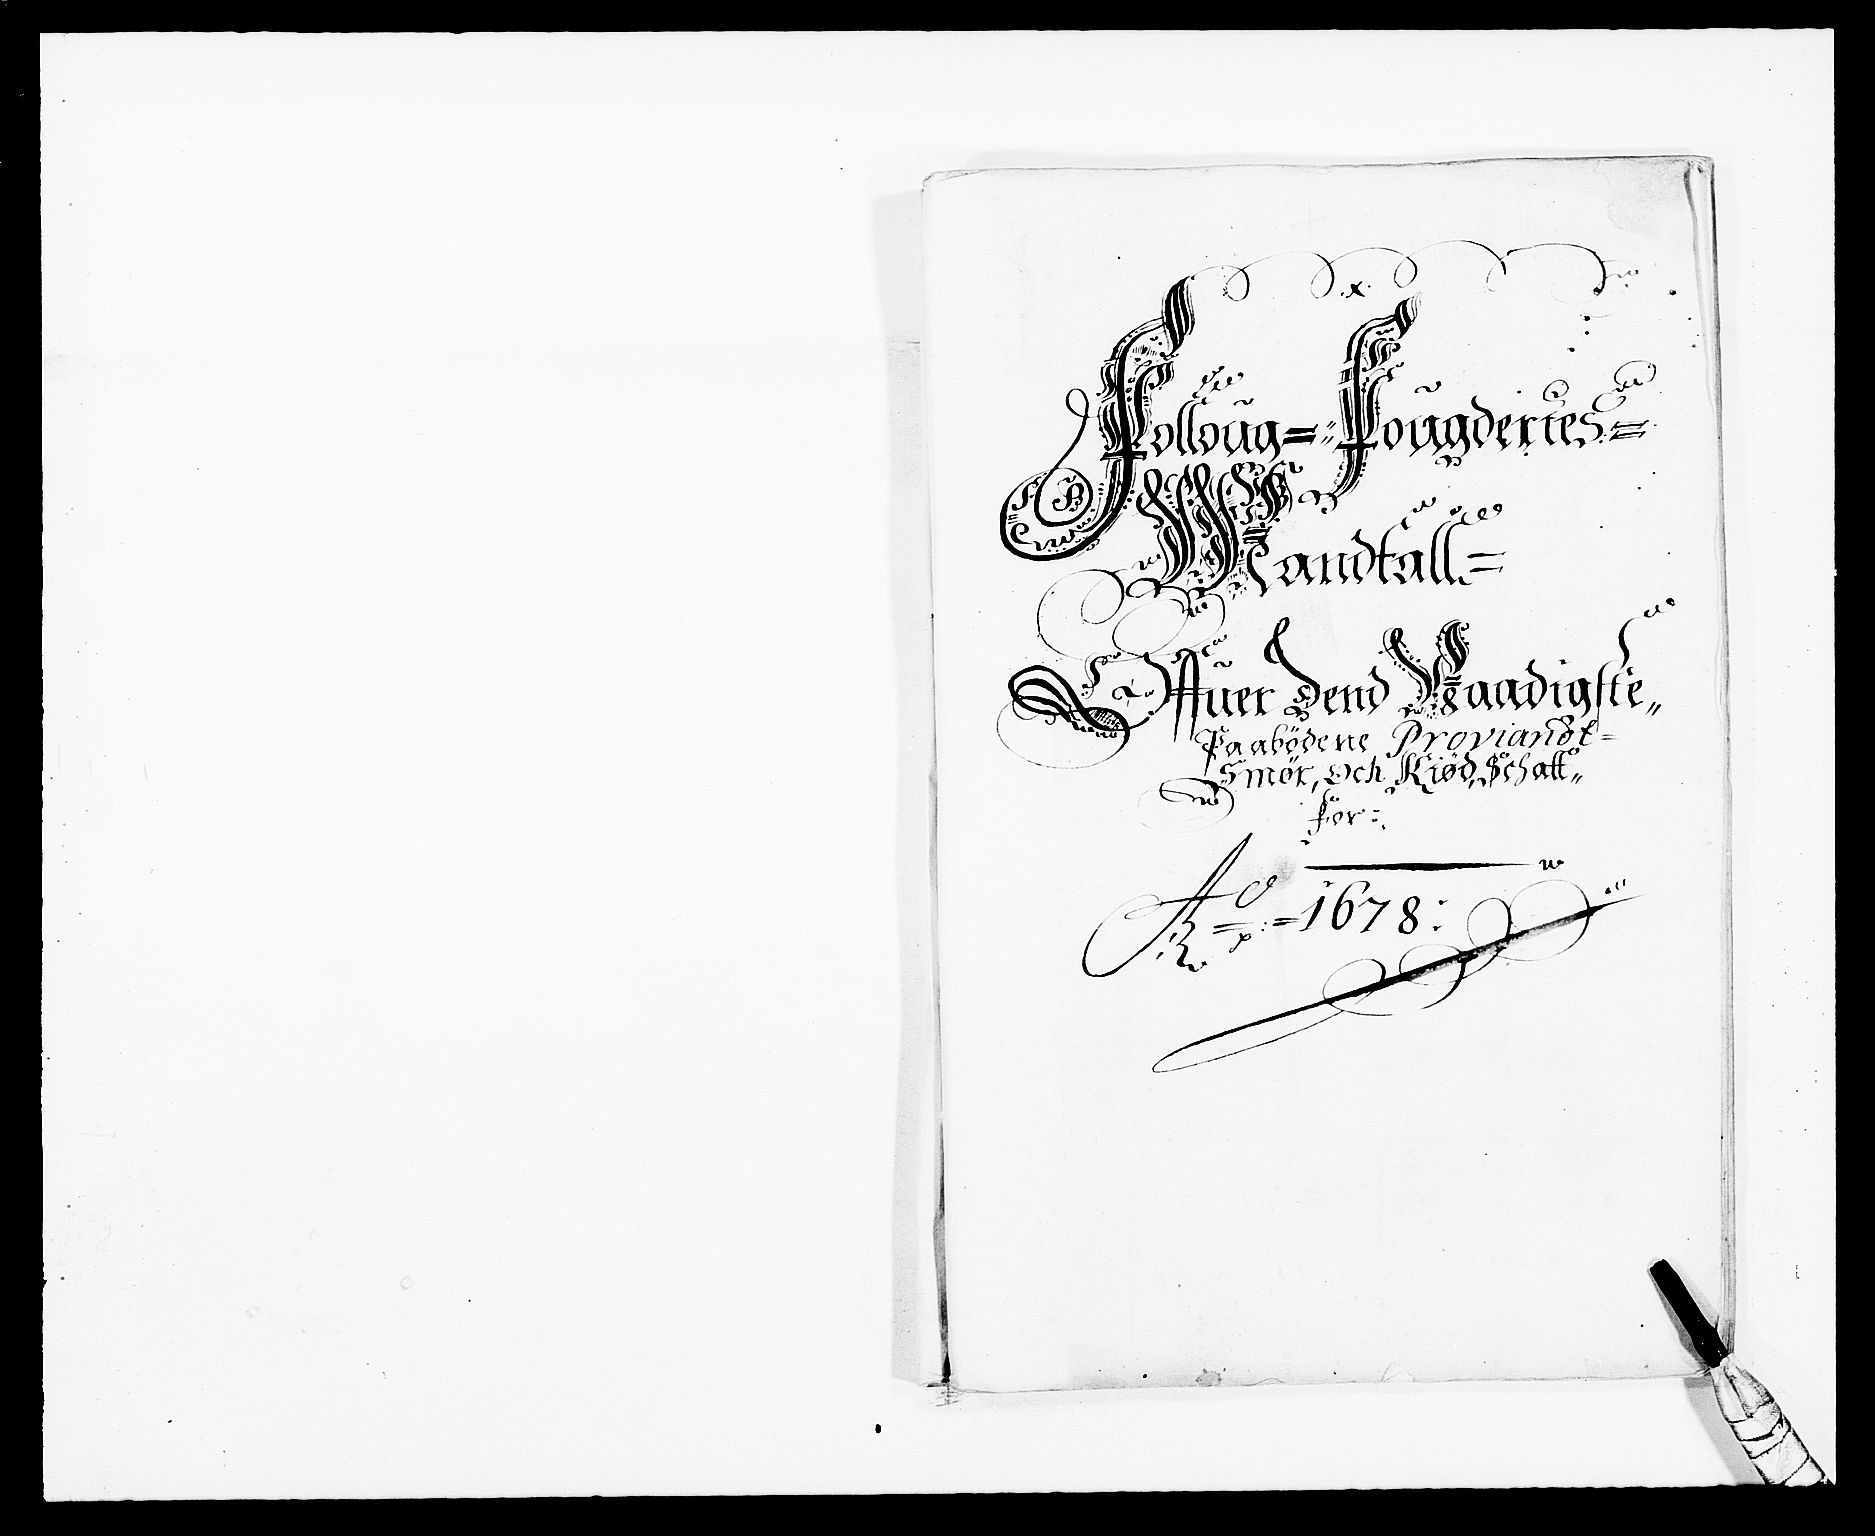 Folloug= Fougderies=
Mandtall=
Offuer Dend Naadigste„
Paabödene Proviandt=
Smör, Och Kiöd, Schatt„
for:
Ao=:=1678: